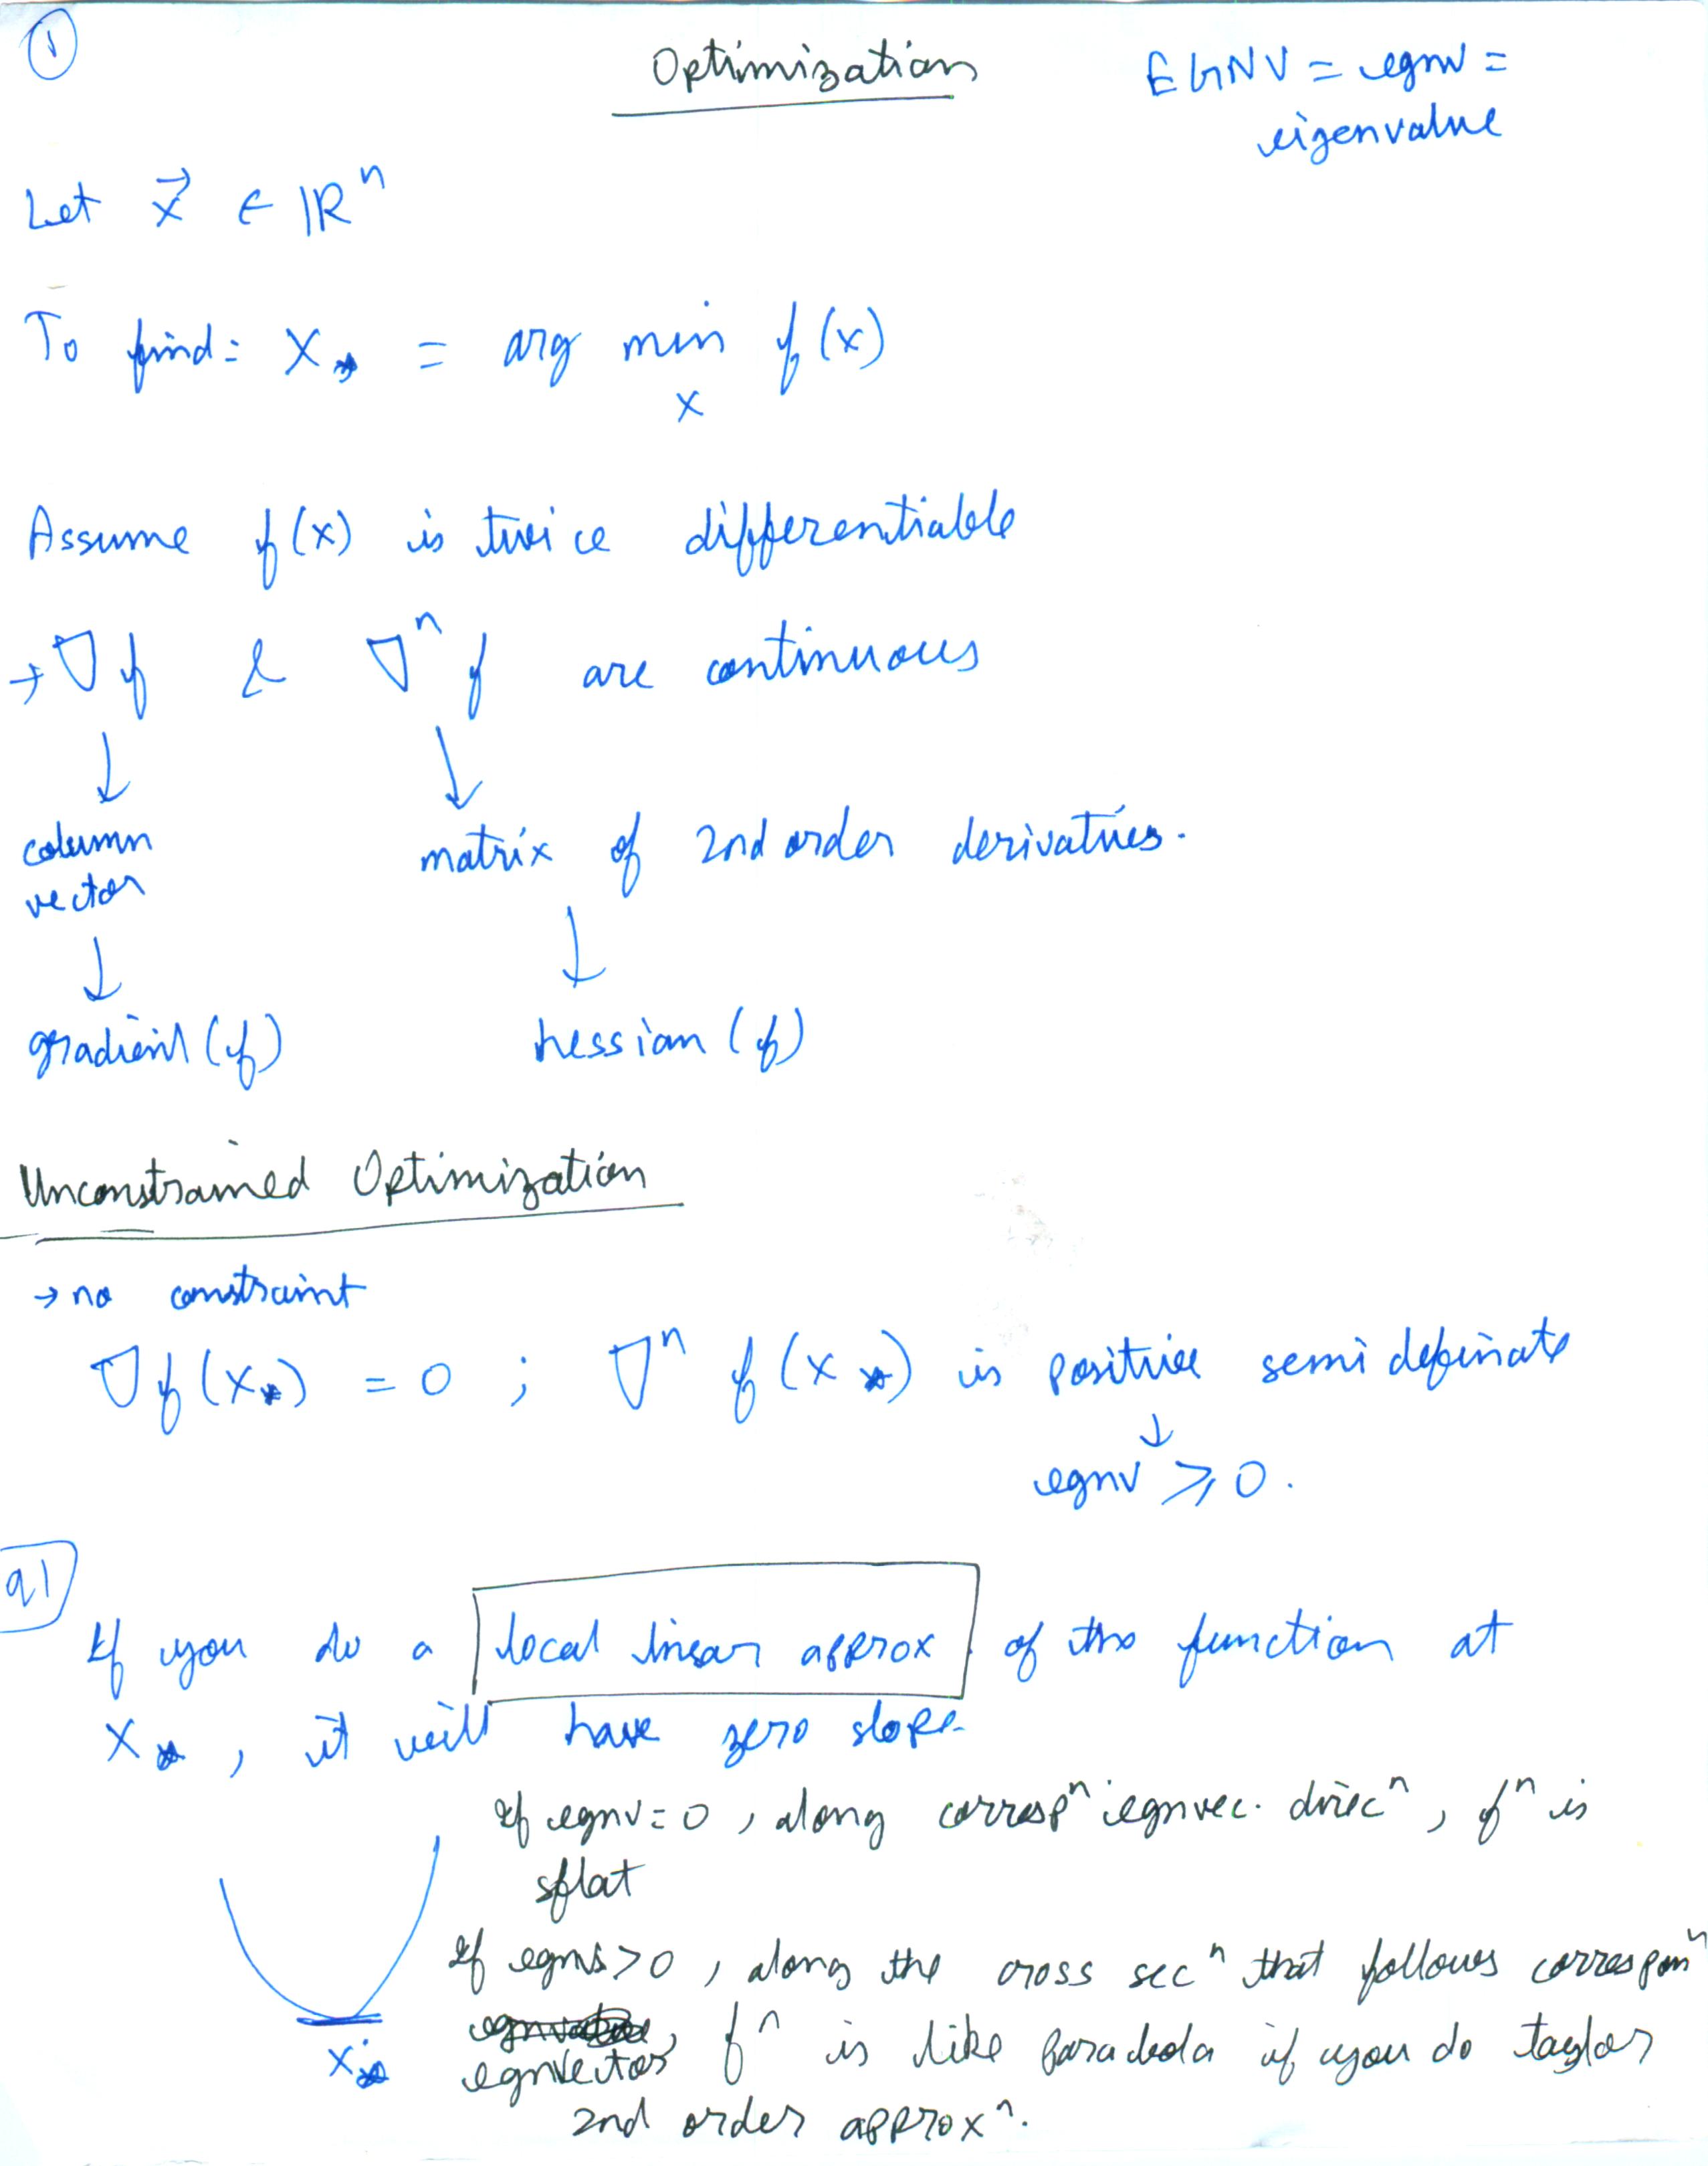 ①
Optimization
EGNV = egnv =
eigenvalue
Let x⃗ ∈ ℝⁿ
To find: x⋆ = arg min f(x)
x
Assume f(x) is twice differentiable
→ ∇f & ∇ⁿf are continuous
↓ ↓
column
vector
matrix of 2nd order derivatives.
↓ ↓
gradient (f) hessian (f)
Unconstrained Optimization
→ no constraint
∇f(x⋆) = 0 ; ∇ⁿ f(x⋆) is positive semi definate
↓
egnv ≥ 0.
q1
If you do a local linear approx of the function at
x⋆, it will have zero slope.
If egnv = 0, along correspⁿ egnvec. direcⁿ, fⁿ is
flat
If egnv > 0, along the cross secⁿ that follows corresponⁿ
egnvector, fⁿ is like parabola if you do taylor
2nd order approxⁿ.
x⋆